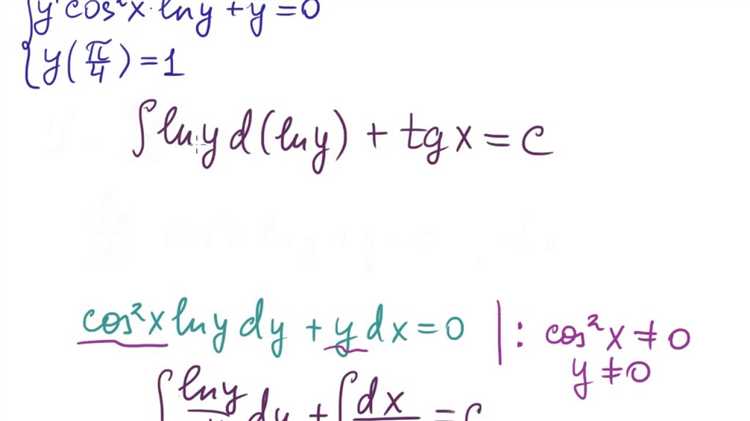 y' cos²x · ln y + y = 0
y(π/4) = 1
∫ ln y d(ln y) + tg x = C
cos²x ln y dy + y dx = 0 | : cos²x ≠ 0
y ≠ 0
∫ ln y dy + ∫ dx = C